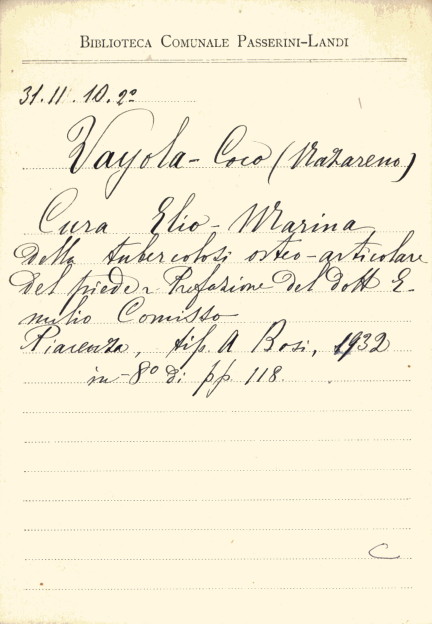 BIBLIOTECA COMUNALE PASSERINI-LANDI
31.11.10.2º
Vayola - Coco (Nazareno)
Cura Elio-Marina
della tubercolosi osteo-articolare
del piede - Prefazione del dott E-
milio Comisso
Piacenza, tip. A Bosi, 1932
in-8º di pp. 118.
C